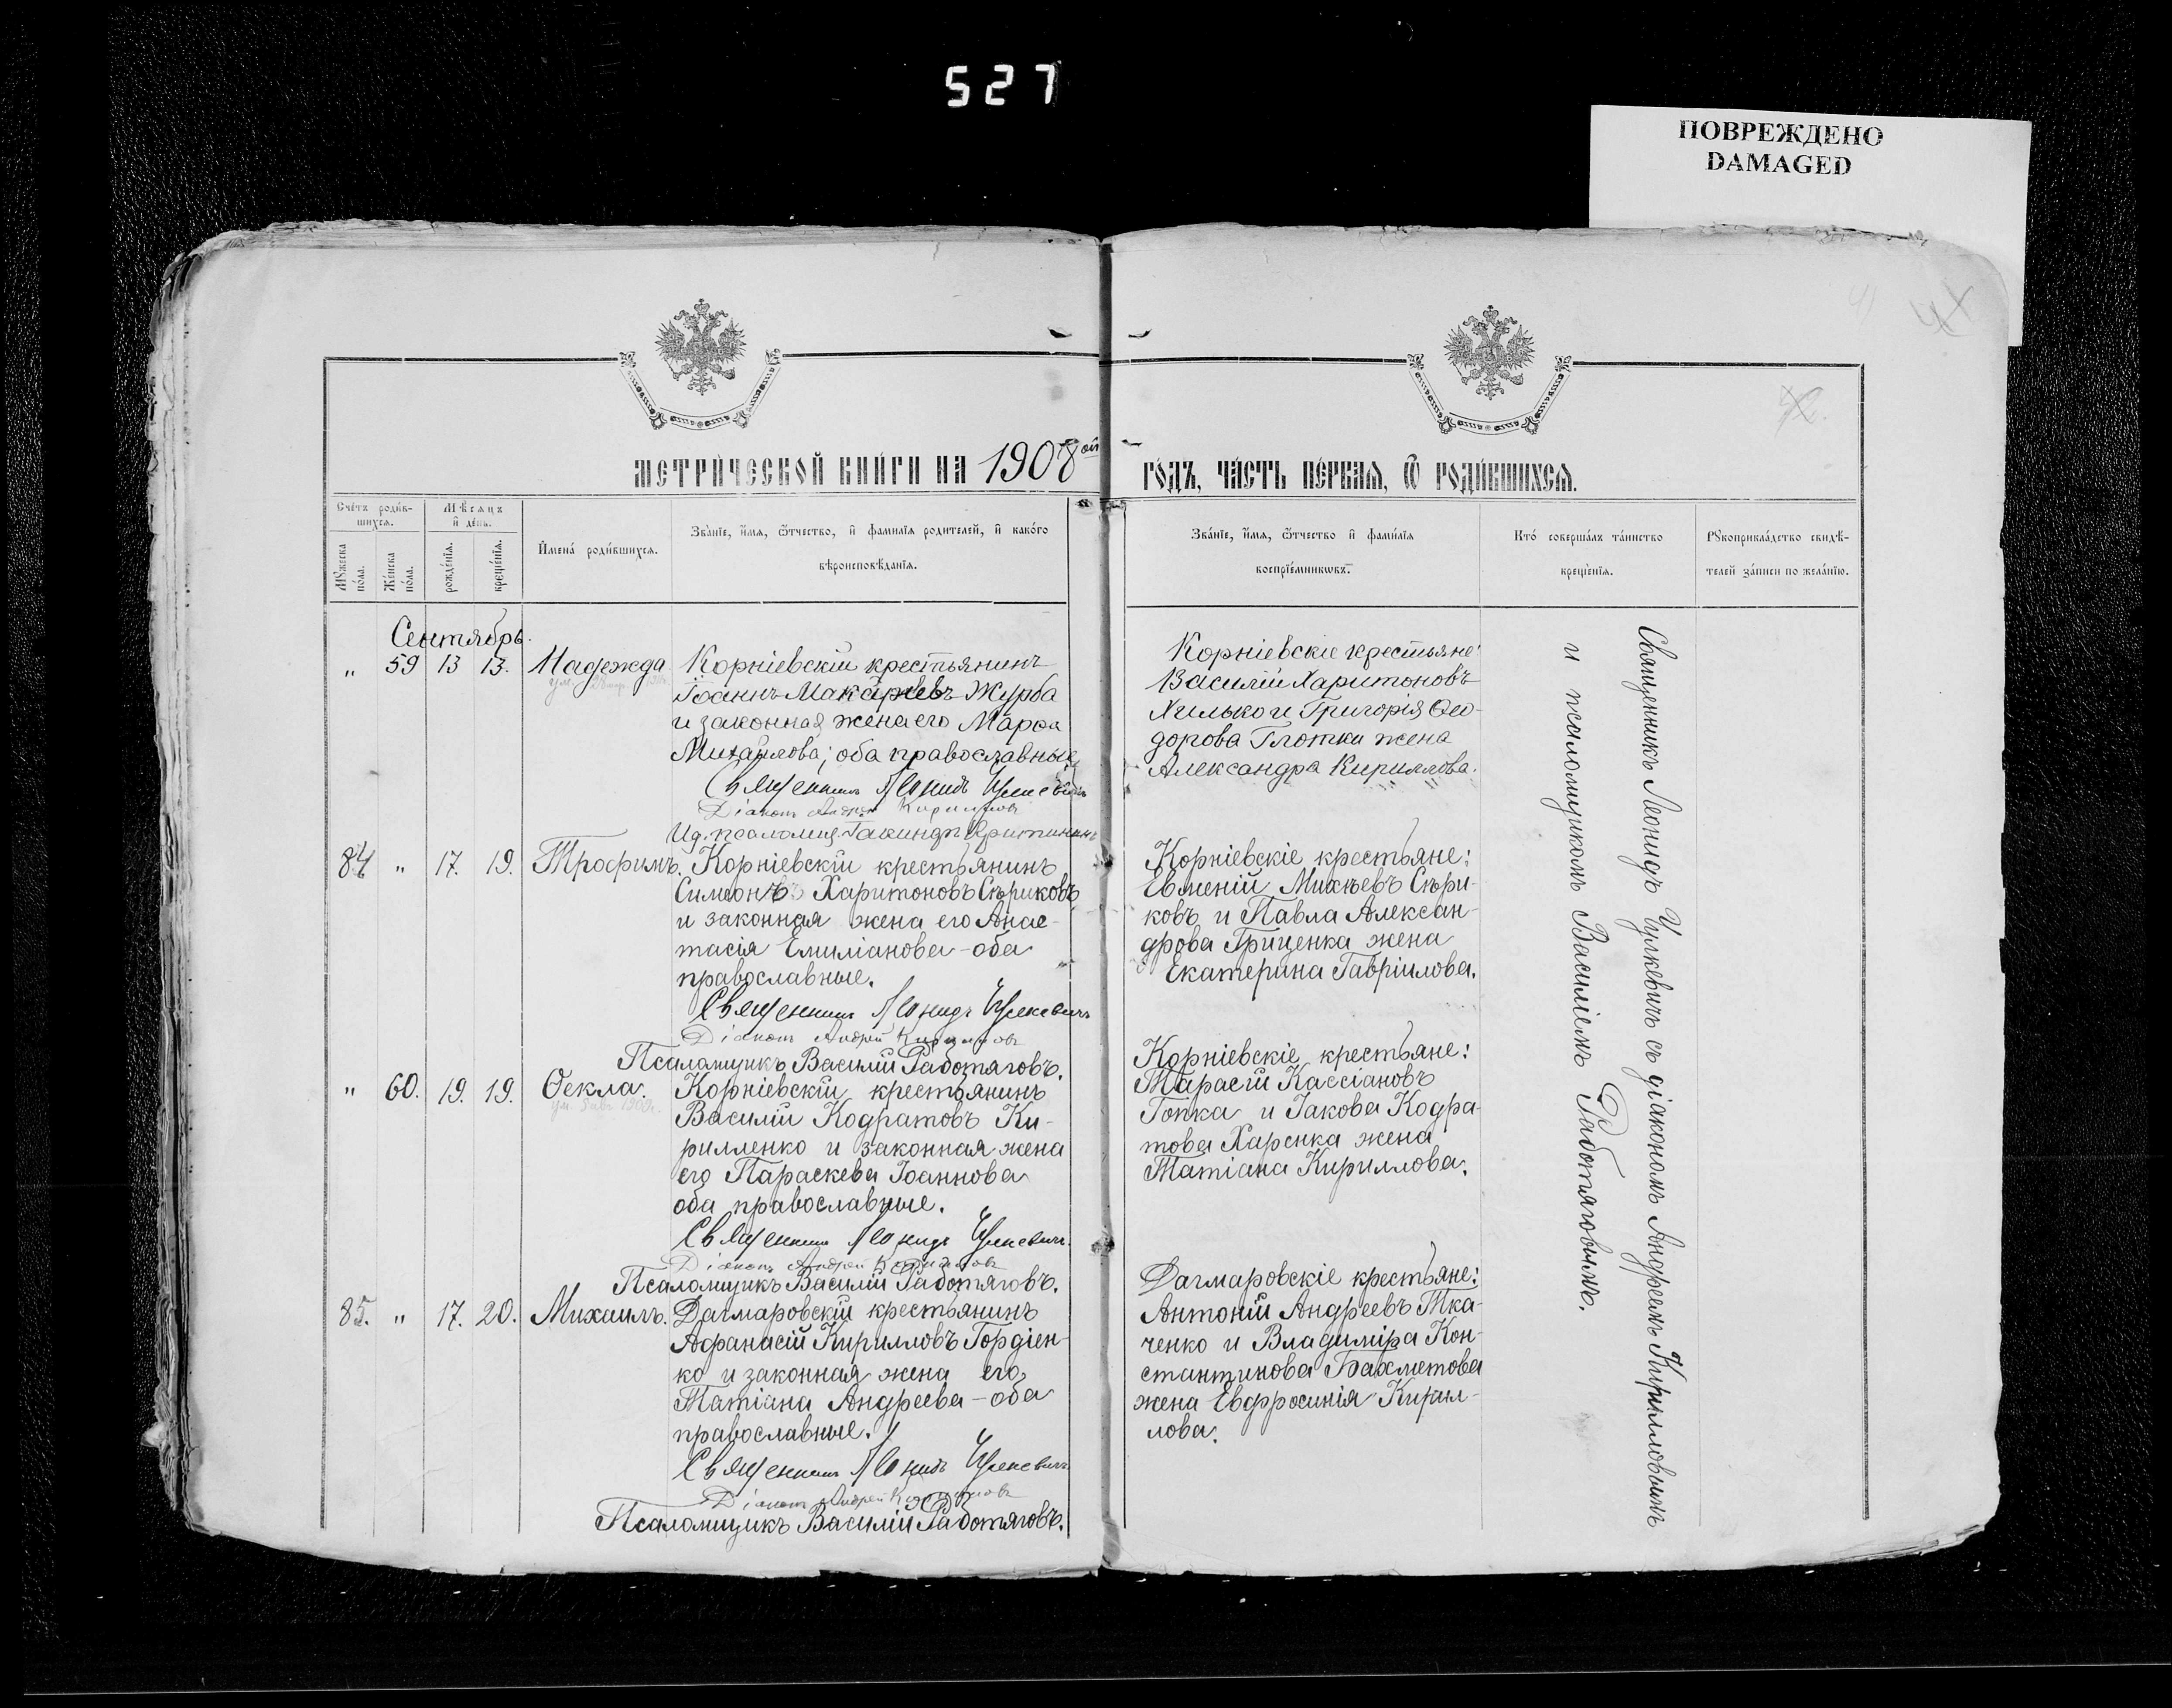 527
ПОВРЕЖДЕНО
DAMAGED
МЕТРИ́ЧЕСКОЙ КНИ́ГИ НА 1908 ой
ГО́ДЪ, ЧА́СТЬ ПЕ́РВАЯ, Ѿ РОДИ́ВШИХСЯ.
Сче́тъ роди́в-
шихся.
Мѣ́сяцъ
и҆ де́нь.
Мꙋ́жеска по́ла.
Же́нска по́ла.
рожде́нїѧ.
креще́нїѧ.
И҆мена́ роди́вшихся.
Зва́нїе, и҆́мѧ, ѻ҆́тчество, и҆ фами́лїѧ роди́телей, и҆ како́гѡ
вѣроисповѣ́данїѧ.
Зва́нїе, и҆́мѧ, ѻ҆́тчество и҆ фами́лїѧ
воспрїе́мникѡвъ.
Кто̀ соверша́лъ та́инство
креще́нїѧ.
Рꙋкоприкла́дство свидѣ́-
телей за́писи по жела́нїю.
Сентябрь.
„ 59 13 13. Надежда Корніевскій крестьянинъ
Іоаннъ Макаріевъ Журба
и законная жена его Марѳа
Михайлова; оба православные
Священникъ Леонидъ Чулкевичъ
Діаконъ Андрей Кирилловъ
Ид. псаломщ. Іакинѳъ
Корніевскіе крестьяне:
Василій Харитоновъ
Хилько и Григорія Ѳео-
дорова Глотки жена
Александра Кириллова.
84 „ 17. 19. Трофимъ. Корніевскій крестьянинъ
Симеонъ Харитоновъ Сѣриковъ
и законная жена его Анас-
тасія Емиліанова - оба
православные.
Священникъ Леонидъ Чулкевичъ
Діаконъ Андрей Кирилловъ
Псаломщикъ Василій Работяговъ.
Корніевскіе крестьяне:
Евменій Михѣевъ Сѣри-
ковъ и Павла Алексан-
дрова Гриценка жена
Екатерина Гавріилова.
„ 60. 19. 19. Ѳекла. Корніевскій крестьянинъ
Василій Кодратовъ Ки-
рилленко и законная жена
его Параскева Іоаннова
оба православные.
Священникъ Леонидъ Чулкевичъ.
Діаконъ Андрей Кирилловъ
Псаломщикъ Василій Работяговъ.
Корніевскіе крестьяне:
Тарасій Кассіановъ
Гопка и Іакова Кодра-
това Харенка жена
Татіана Кириллова.
85. „ 17. 20. Михаилъ. Дагмаровскій крестьянинъ
Аѳанасій Кирилловъ Гордіен-
ко и законная жена его
Татіана Андреева - оба
православные.
Священникъ Леонидъ Чулкевичъ
Діаконъ Андрей Кирилловъ
Псаломщикъ Василій Работяговъ.
Дагмаровскіе крестьяне:
Антоній Андреевъ Тка-
ченко и Владиміра Кон-
стантинова Бахметова
жена Евфросинія Кирил-
лова.
Священникъ Леонидъ Чулкевичъ съ діакономъ Андреемъ Кирилловымъ
и псаломщикомъ Василіемъ Работяговымъ.